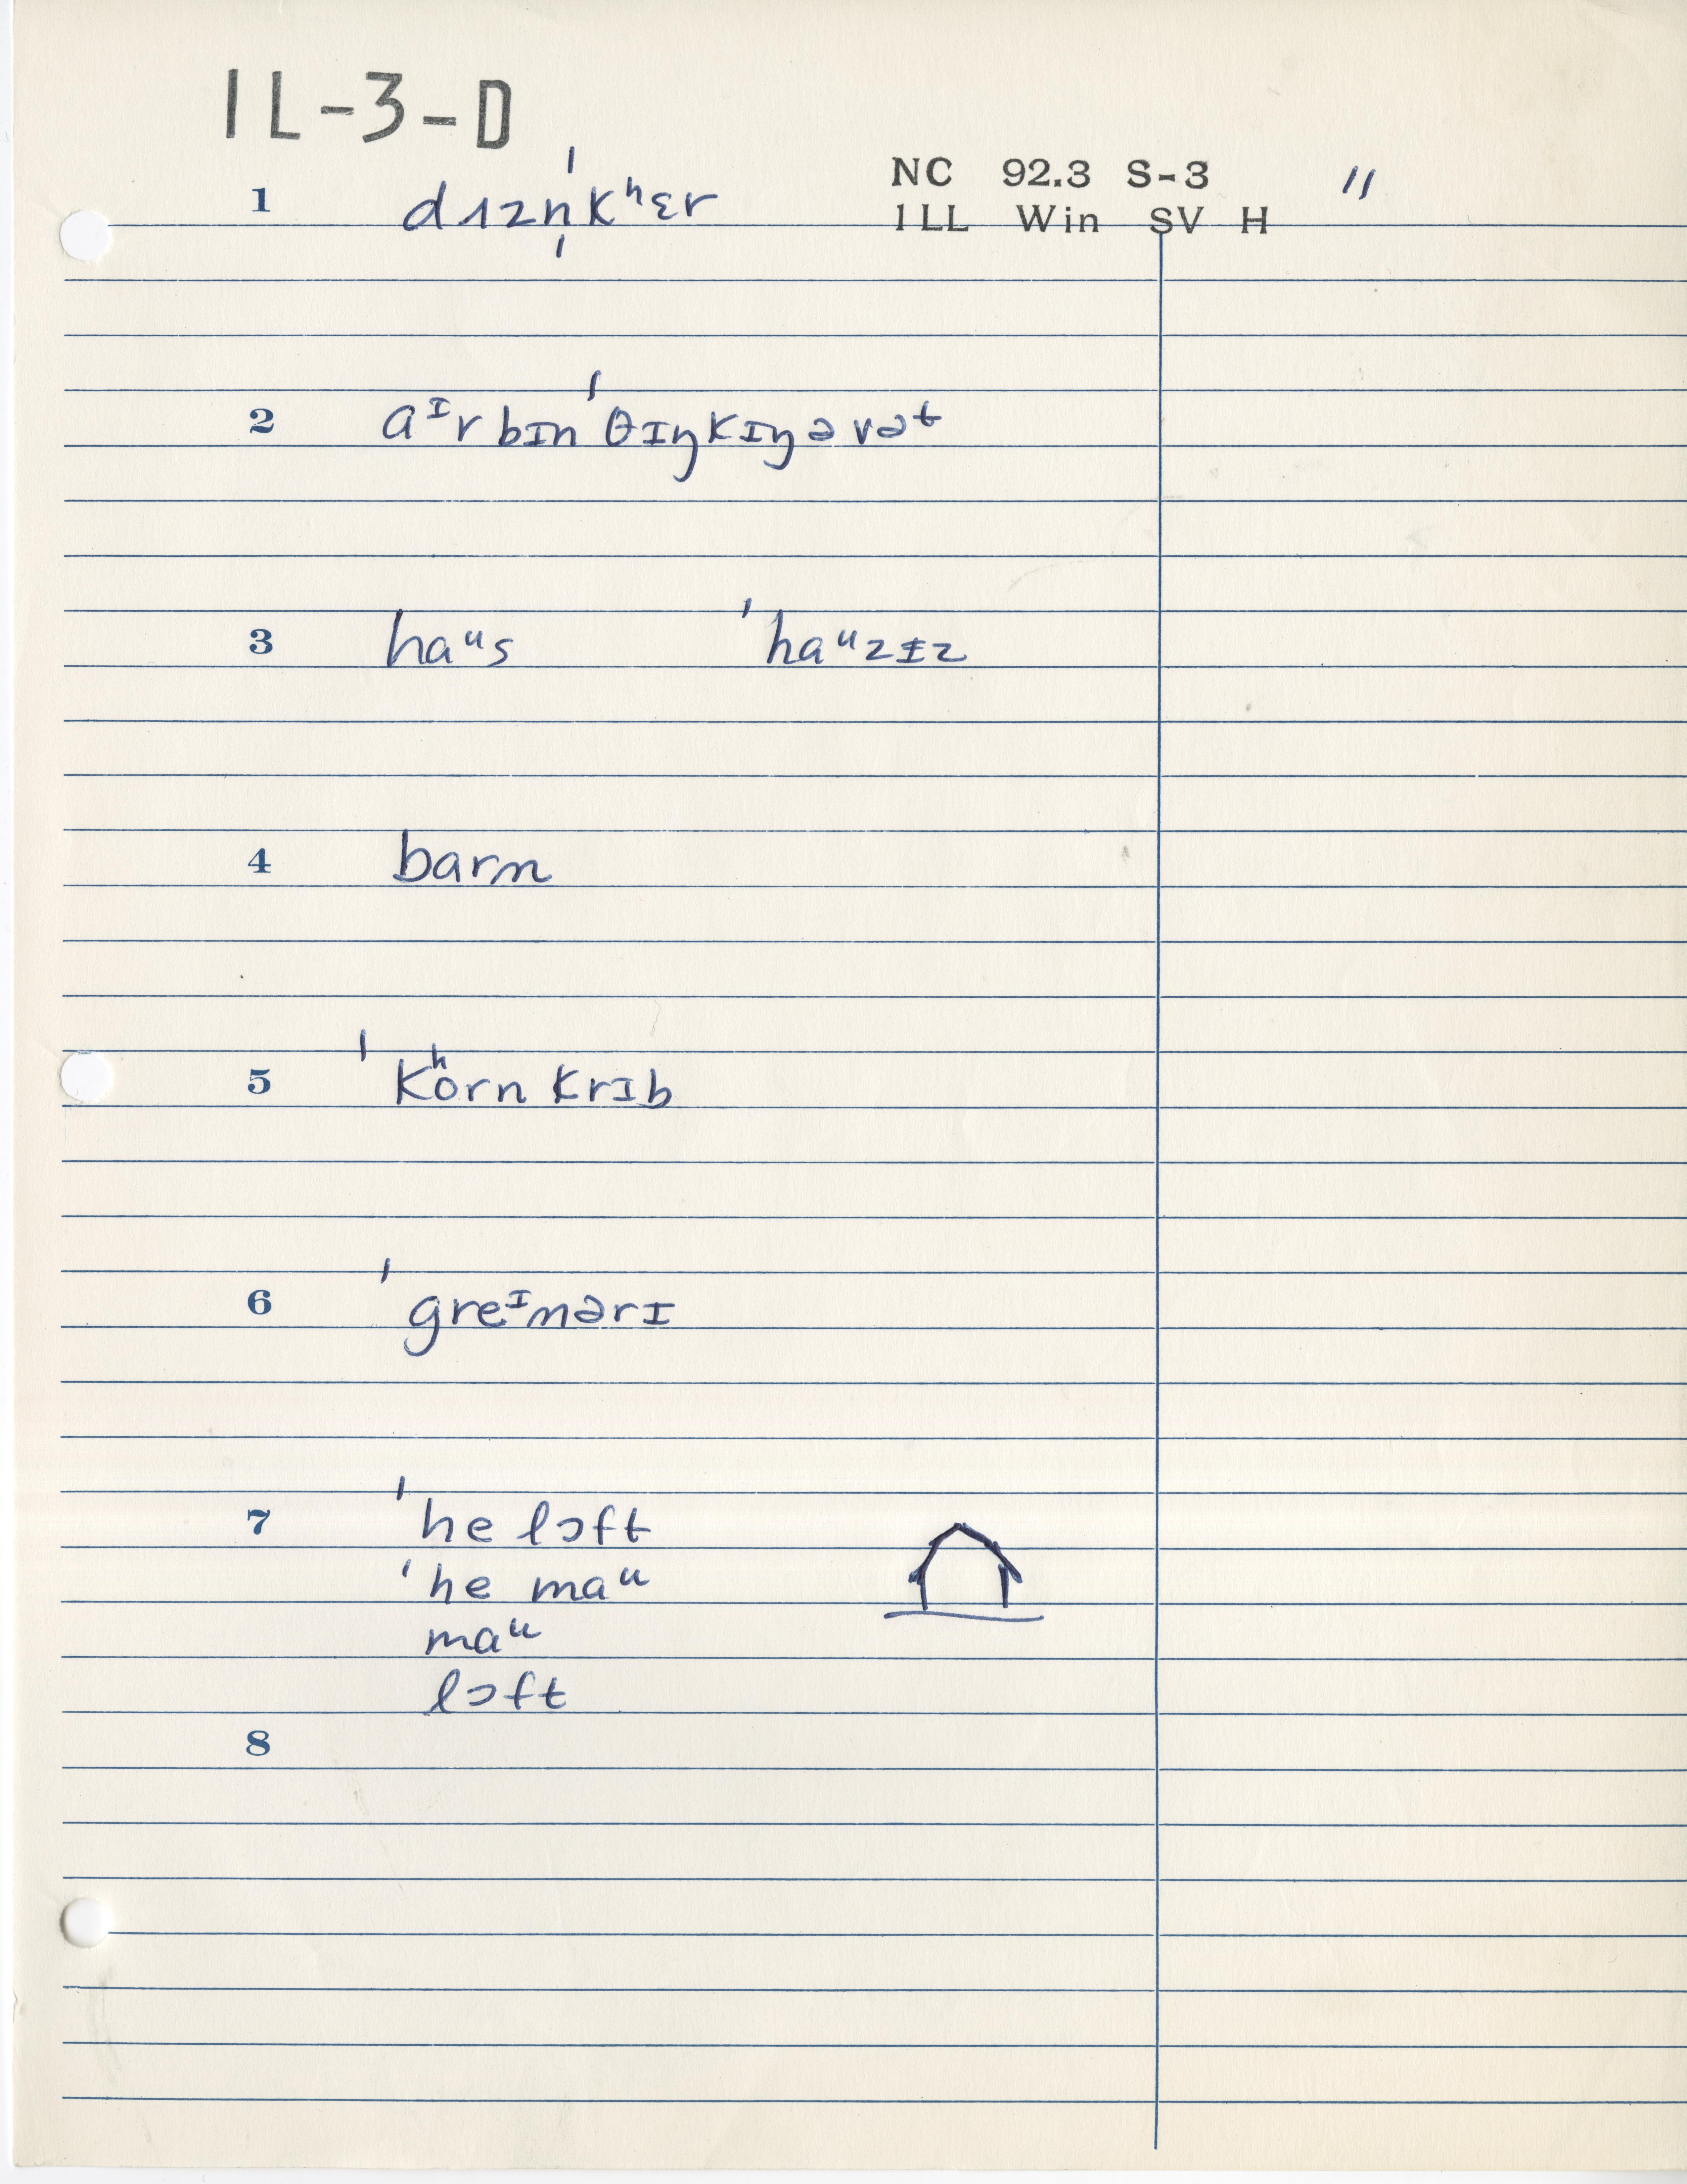 1L-3-D
NC 92.3 S-3 11
1LL Win SV H
1 dɪzn̩ˈkʰɛr
2 aᴵr bɪnˈθɪŋkɪŋəvət
3 haᵘs ˈhaᵘzɪz
4 barn
5 ˈkʰorn krɪb
6 ˈgreᴵnərɪ
7 ˈhe lɔft
ˈhe maᵘ
maᵘ
lɔft
8